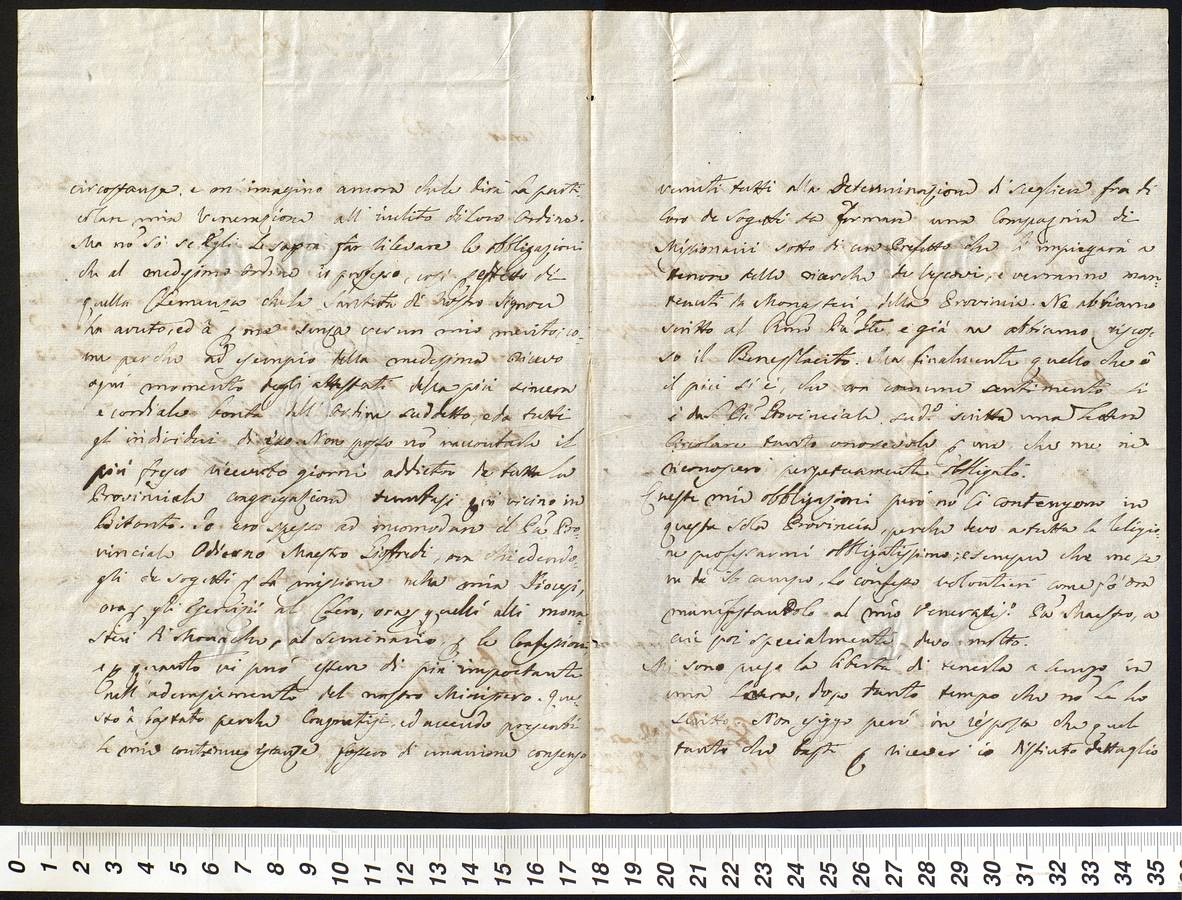 circostanza. e m'imagino ancora che le dirà la parti-
colare mia Venerazione all'inclito di loro Ordine.
Ma nō sò se Egli Le sapra far rilevare le obbligazioni
che al medesimo Ordine io professo, così
quella Clemenza che la Santità di Nostro Signore
ha avuto, ed à per me senza verun mio merito; co-
me perche ad esempio della medesima ricevo
ogni momento degli attestati della più sincera
e cordiale bontà dell'Ordine suddetto, e da tutti
gl'individui di esso. Non posso nō raccontarle il
più fresco ricevuto giorni addietro da tutta la
Provinciale congregazione tenutasi qui vicino in
Bitonto. Io ero spesso ad incomodare il Pre Pro-
vinciale Odierno Maestro or chiedendo-
gli de sogetti per la missione nella mia Diocesi,
ora per gli Esercizi al Clero, ora per quelli alle mona-
steri di Monache, al Seminario, per le Confessioni
e per quanto vi può essere di più importante
nell'adempimento del nostro Ministero. Que-
sto à bastato perche Congregatisi, ed avendo presenti
le mie continue istanze fossero di unanime consenso
venuti tutti alla Determinazione di scegliere fra di
loro de Sogetti da formare una Compagnia di
Missionarii sotto di un Prefetto che l'impiegarà a
tenore delle ricerche de Vescovi, e verranno man-
tenuti da Monasteri della Provincia. Ne abbiamo
scritto al Rmo Pre Gle e già ne abbiamo riscos-
so il Beneplacito. Ma finalmente quello che è
il più si è, che con comune sentimento si
è dal Pre Provinciale sudo scritta una Lettera
Circolare tanto onorevole per me che me ne
riconoscerò perpetuamente obbligato.
Queste mie obbligazioni però nō si contengono in
questa sola Provincia, perche devo a tutta la Religio-
ne professarmi obbligatissimo; e sempre che me se
ne dà il campo, lo confesso volontieri come fò ora
manifestandolo al mio Veneratmo Pre Maestro, a
cui poi specialmente devo molto.
Mi sono preso la libertà di tenerla a lungo in
una Lettera, dopo tanto tempo che nō Le ho
scritto. Non esiggo però in risposta che quel
tanto che basti per ricever io distinto dettaglio